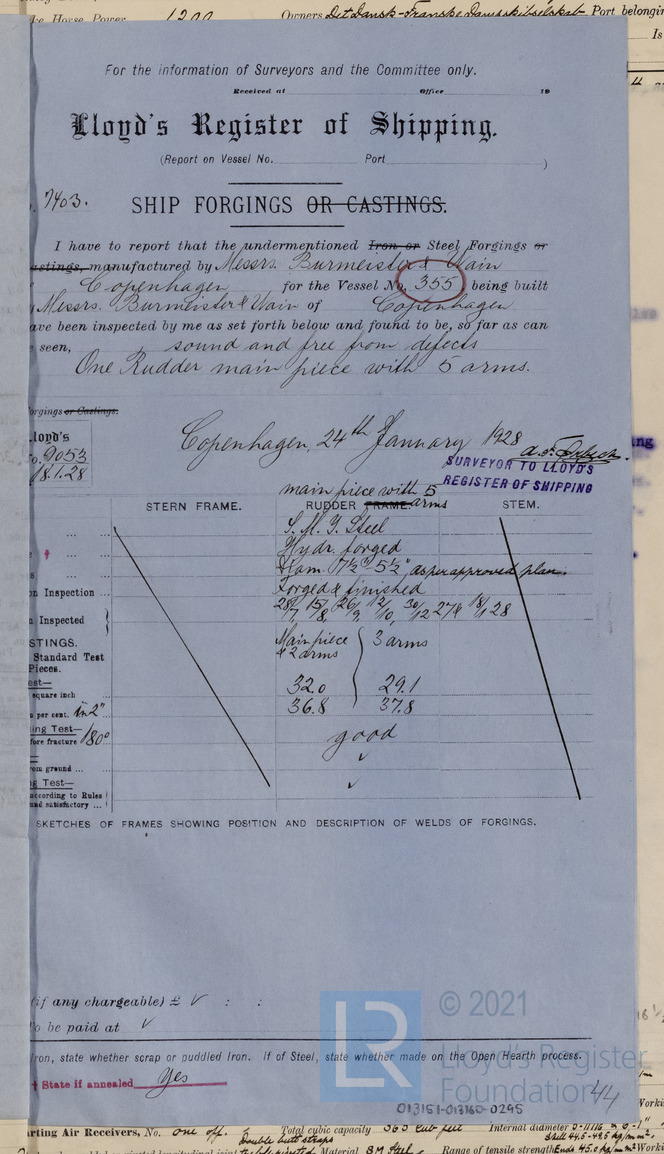 ke Horse Power 1200 Owners Det Dansk-Franske Dampskibsselskab Port belonging
Is
For the information of Surveyors and the Committee only.
Received at Office 19
Lloyd's Register of Shipping.
(Report on Vessel No. Port )
7403.
SHIP FORGINGS OR CASTINGS.
I have to report that the undermentioned Iron or Steel Forgings or
astings, manufactured by Messrs. Burmeister & Wain
Copenhagen for the Vessel No. 355 being built
Messrs. Burmeister & Wain of Copenhagen
ave been inspected by me as set forth below and found to be, so far as can
seen, sound and free from defects
One Rudder main piece with 5 arms.
orgings or Castings.
loyd's
o. 9053
18.1.28
Copenhagen, 24th January 1928
SURVEYOR TO LLOYD'S
REGISTER OF SHIPPING
main piece with 5
STERN FRAME. RUDDER FRAME. arms STEM.
S. M. I. Steel
Hydr. forged
Diam. 7½" 5½" as per approved plan.
n Inspection Forged & finished
n Inspected 28/7, 15/8, 26/9, 12/10, 30/12 27 & 18/1 28
STINGS.
Standard Test
Pieces.
Main piece & 2 arms 3 arms
est—
square inch 32.0 29.1
n per cent. in 2" 36.8 37.8
ing Test—
fore fracture 180° good
rom ground ... ✓
g Test—
according to Rules
nd satisfactory ... ✓
SKETCHES OF FRAMES SHOWING POSITION AND DESCRIPTION OF WELDS OF FORGINGS.
(if any chargeable) £ ✓ : :
o be paid at ✓
Iron, state whether scrap or puddled Iron. If of Steel, state whether made on the Open Hearth process.
† State if annealed Yes
LR
© 2021
Lloyd's Register
Foundation
44
013151-013160-0295
rting Air Receivers, No. one off. Total cubic capacity 565 cub feet Internal diameter
Double butt straps Shell 44.5-49.5 kg/mm²
Material SM Steel Range of tensile strength Ends 45.0 kg/mm² Worki